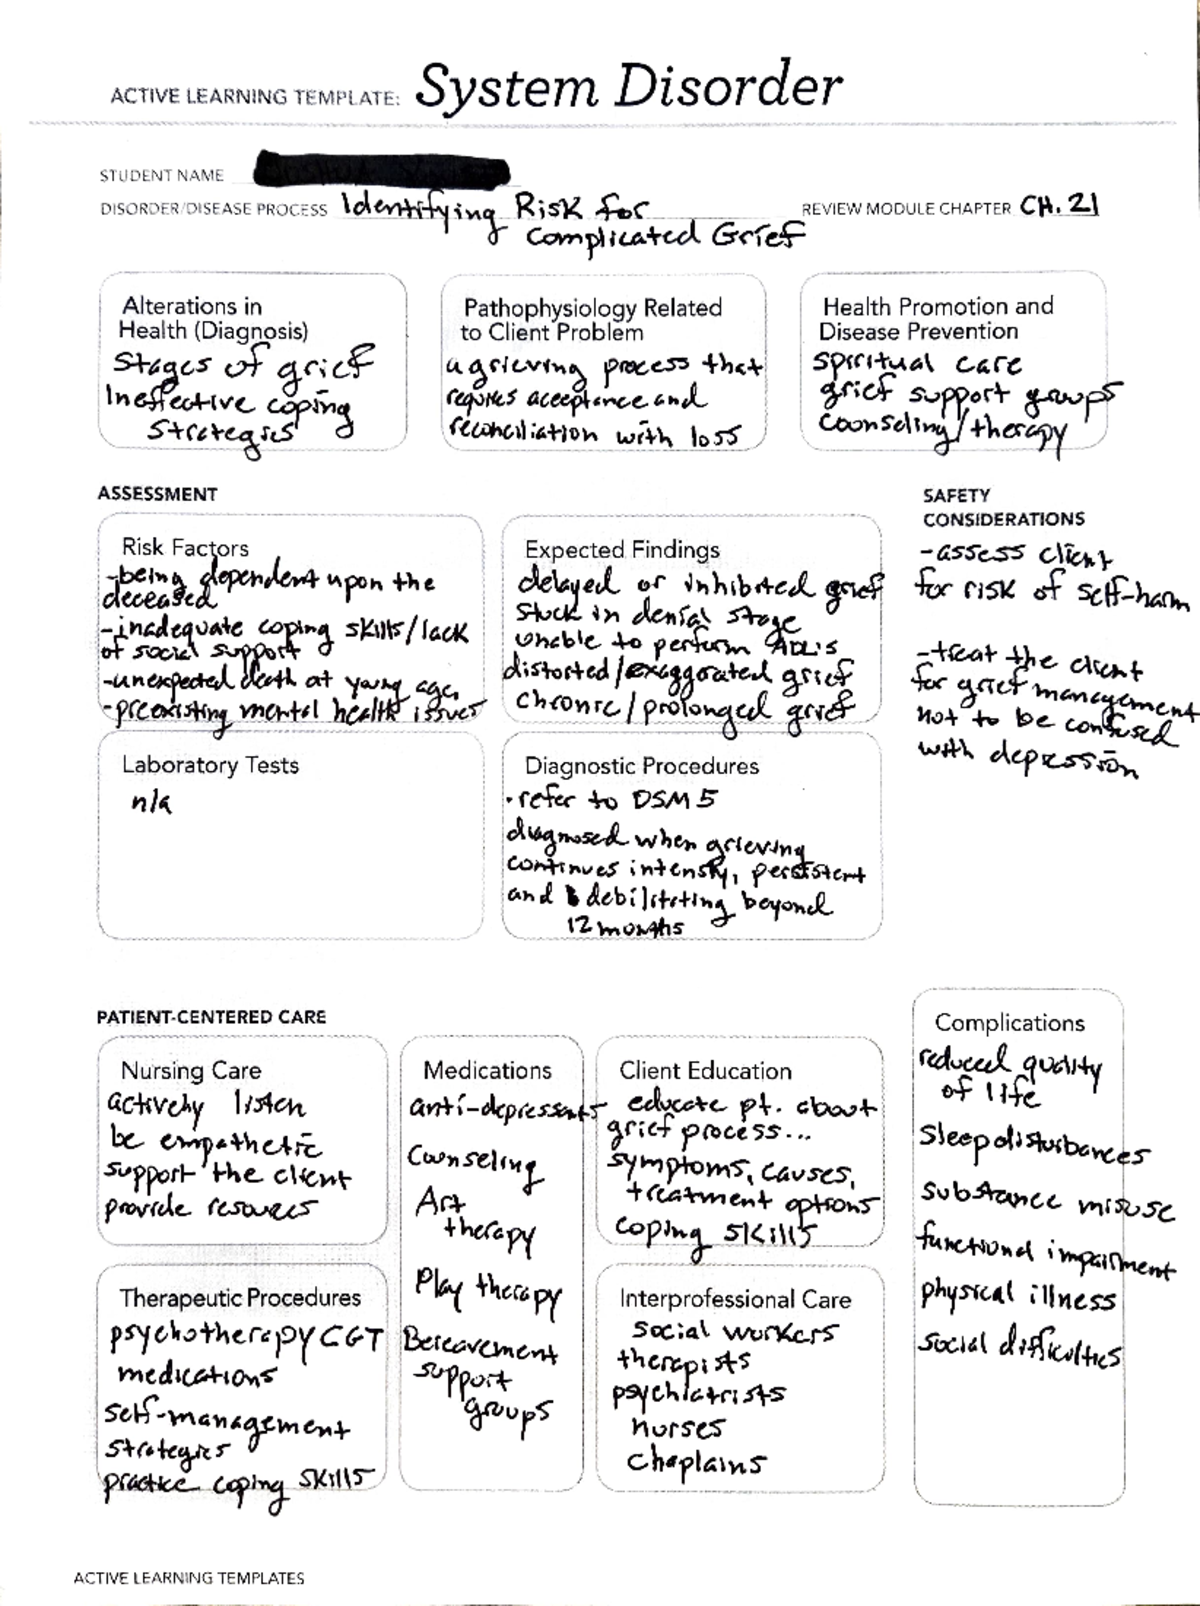 ACTIVE LEARNING TEMPLATE: System Disorder
STUDENT NAME
DISORDER/DISEASE PROCESS Identifying Risk for
Complicated Grief
REVIEW MODULE CHAPTER CH. 21
Alterations in
Health (Diagnosis)
Stages of grief
Ineffective coping
strategies
Pathophysiology Related
to Client Problem
a grieving process that
requires acceptance and
reconciliation with loss
Health Promotion and
Disease Prevention
spiritual care
grief support groups
counseling/therapy
ASSESSMENT
Risk Factors
-being dependent upon the
deceased
-inadequate coping skills/lack
of social support
-unexpected death at young age,
-preexisting mental health issues
Expected Findings
delayed or inhibited grief
stuck in denial stage
unable to perform ADL's
distorted/exaggorated grief
chronic/prolonged grief
SAFETY
CONSIDERATIONS
-assess client
for risk of self-harm
-treat the client
for grief management
not to be confused
with depression
Laboratory Tests
n/a
Diagnostic Procedures
• refer to DSM 5
diagnosed when grieving
continues intensly, persistent
and debilitating beyond
12 months
PATIENT-CENTERED CARE
Nursing Care
actively listen
be empathetic
support the client
provide resources
Medications
anti-depressents
Counseling
Art
therapy
Play therapy
Bereavement
support
groups
Client Education
educate pt. about
grief process...
symptoms, causes,
treatment options
coping skills
Complications
reduced quality
of life
sleep disturbances
substance misuse
functional impairment
physical illness
social difficulties
Therapeutic Procedures
psychotherapy CGT
medications
self-management
strategies
practice coping skills
Interprofessional Care
social workers
therapists
psychiatrists
nurses
chaplains
ACTIVE LEARNING TEMPLATES